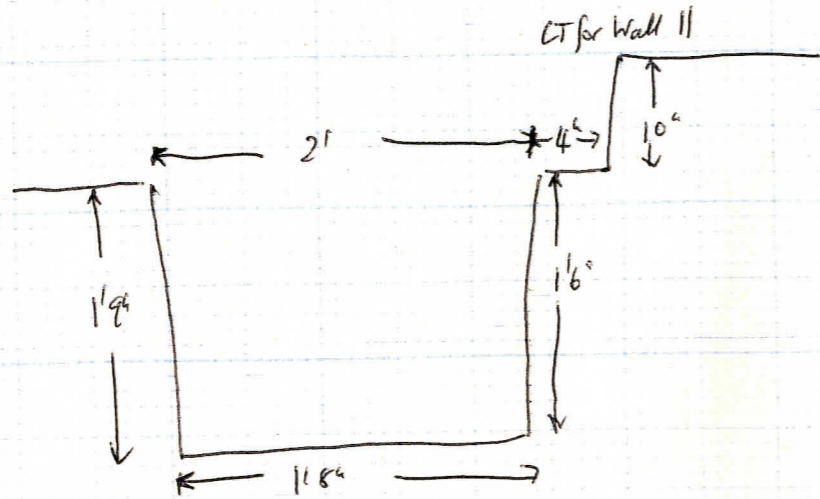 CT for Wall 11
2'
4"
10"
1'9"
1'6"
1'8"